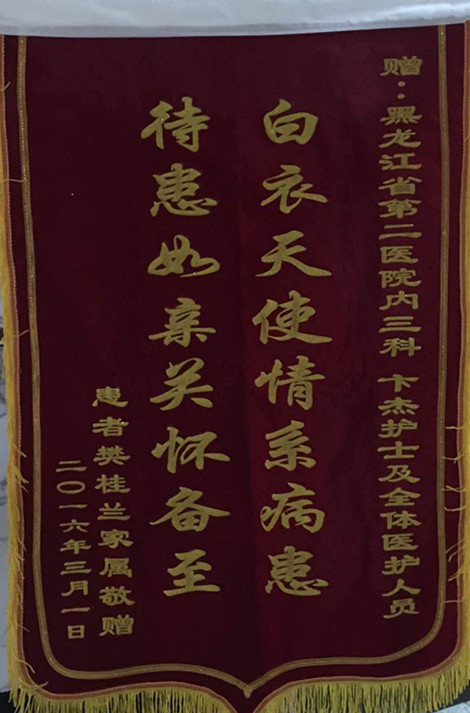 赠：黑龙江省第二医院内三科 卞杰护士及全体医护人员
白衣天使情系病患
待患如亲关怀备至
患者樊桂兰家属敬赠
二〇一六年三月一日